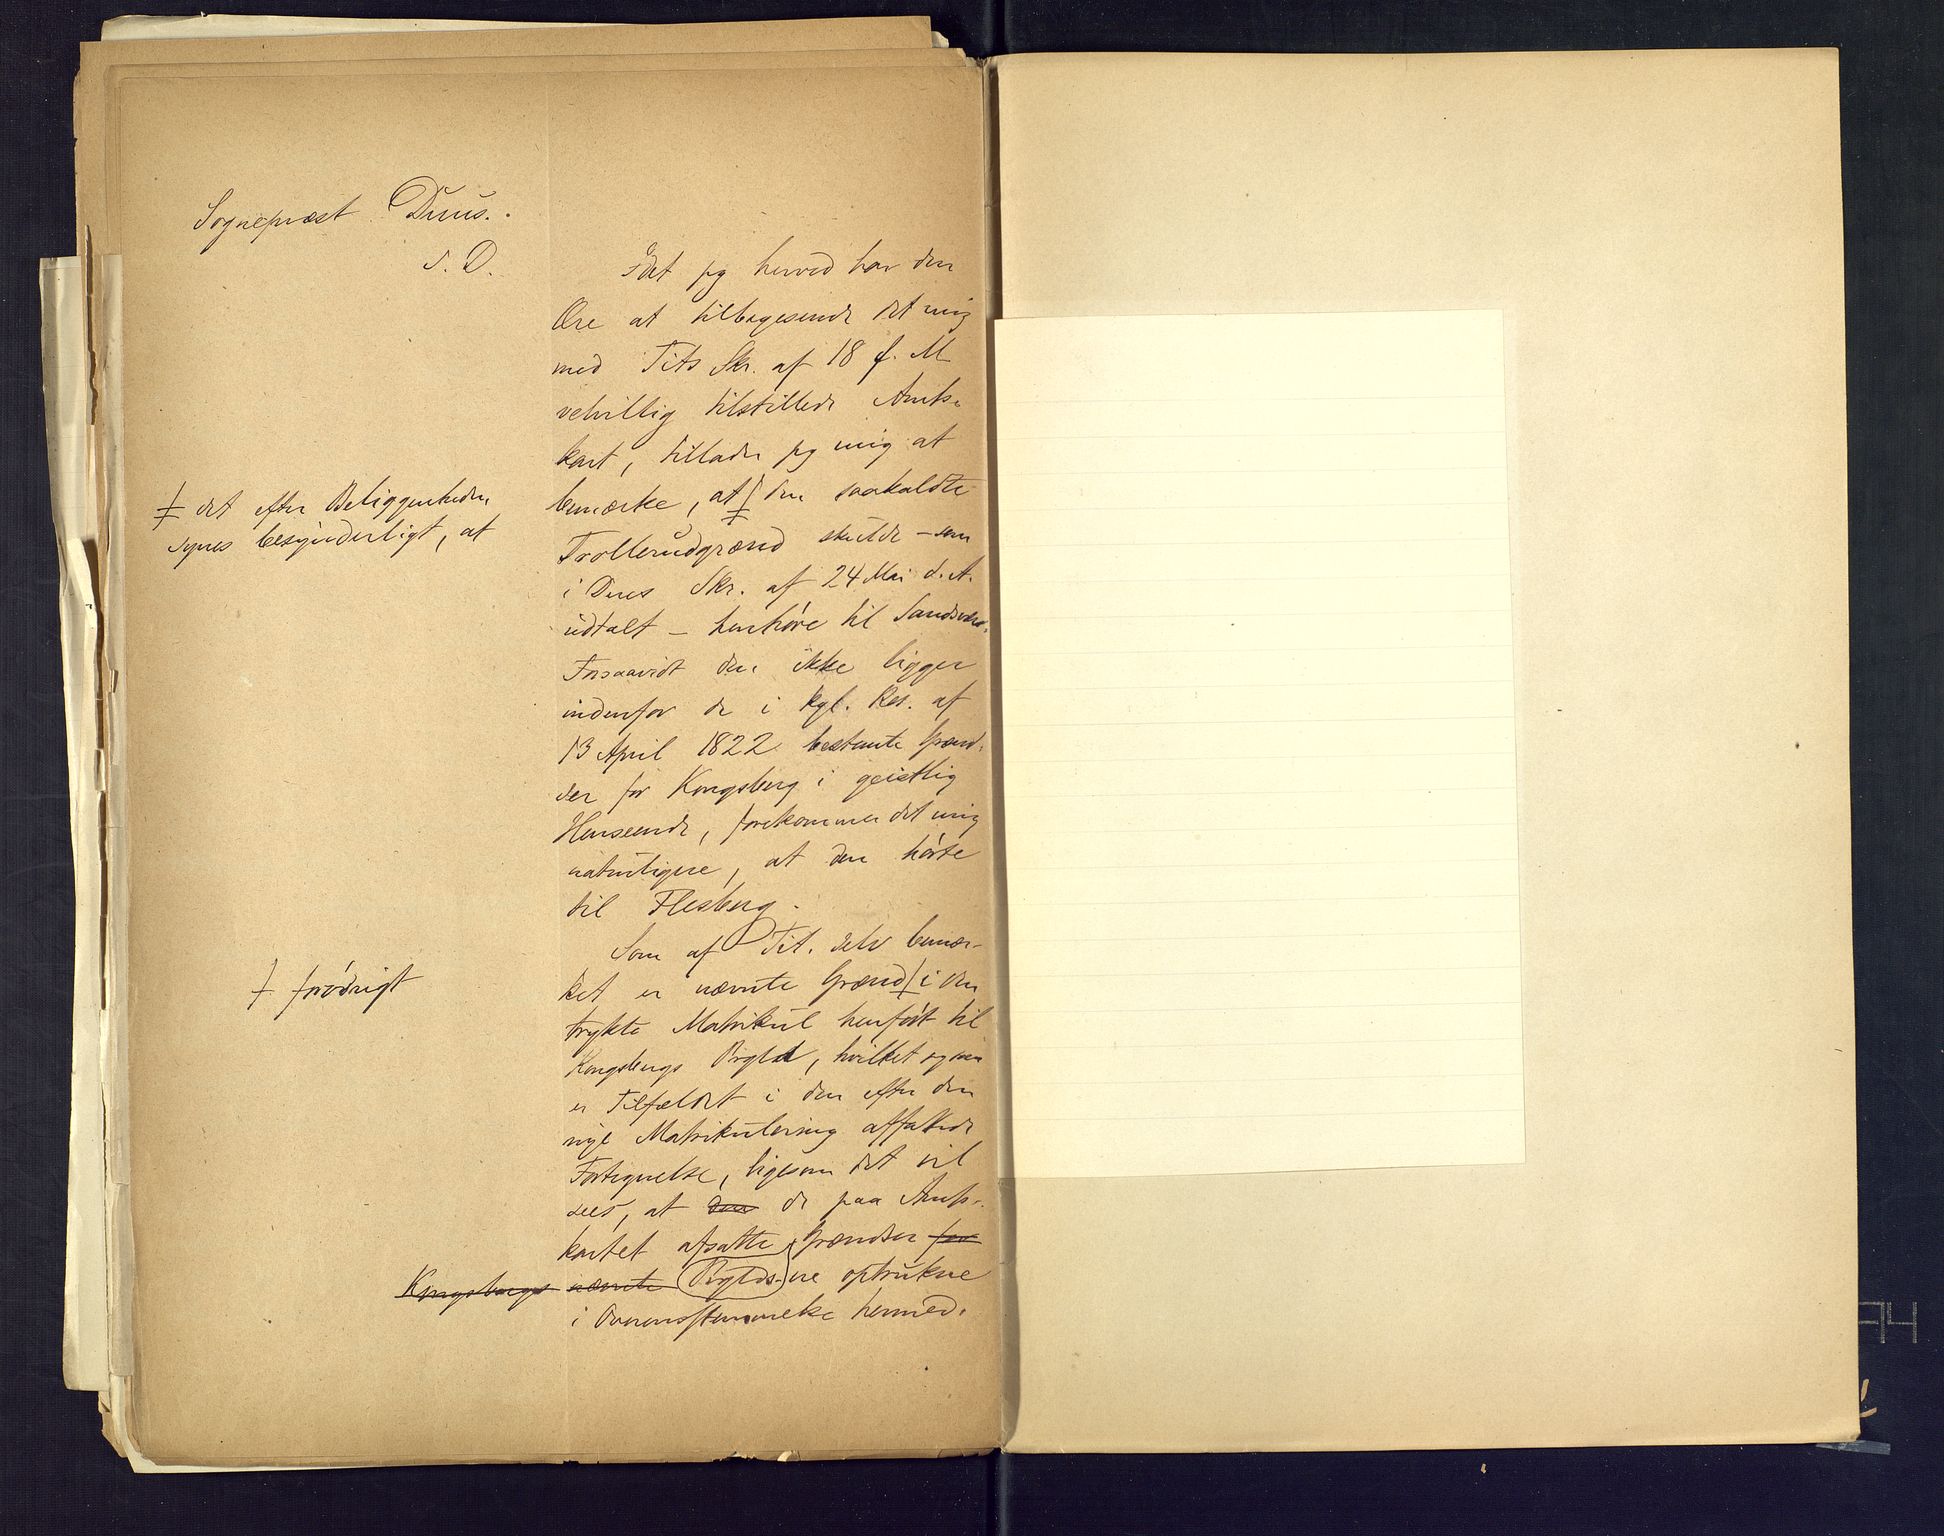 Sognepræst Duus.
S. D.
Idet jeg herved har den
Ære at tilbagesende det mig
med Tits Skr. af 18 f. M
velvillig tilstillede Amts-
kart, tillader jeg mig at
bemærke, at ‡ den saakaldte
‡ det efter Beliggenheden
synes besynderligt, at
Trollerudgrænd skulde – som
i Deres Skr. af 24 Mai d. A.
udtalt – henhøre til Sandsvær.
Forsaavidt den ikke ligger
indenfor de i kgl. Res. af
13 April 1822 bestemte Grænd-
ser for Kongsberg i geistlig
Henseende, forekommer det mig
naturligere, at den hørte
til Flesberg.
Som af Tit. selv bemær-
ket er nævnte Grænd ‡ i den
‡ forøvrigt
trykte Matrikul henført til
Kongsbergs Prgld, hvilket ogsaa
er Tilfældet i den efter den
nye Matrikulering affattede
Fortegnelse, ligesom det vil
sees, at den de paa Amts-
kartet afsatte Grændser for
Kongsbergs nævnte Prglds. ere optrukne
i Overensstemmelse hermed.